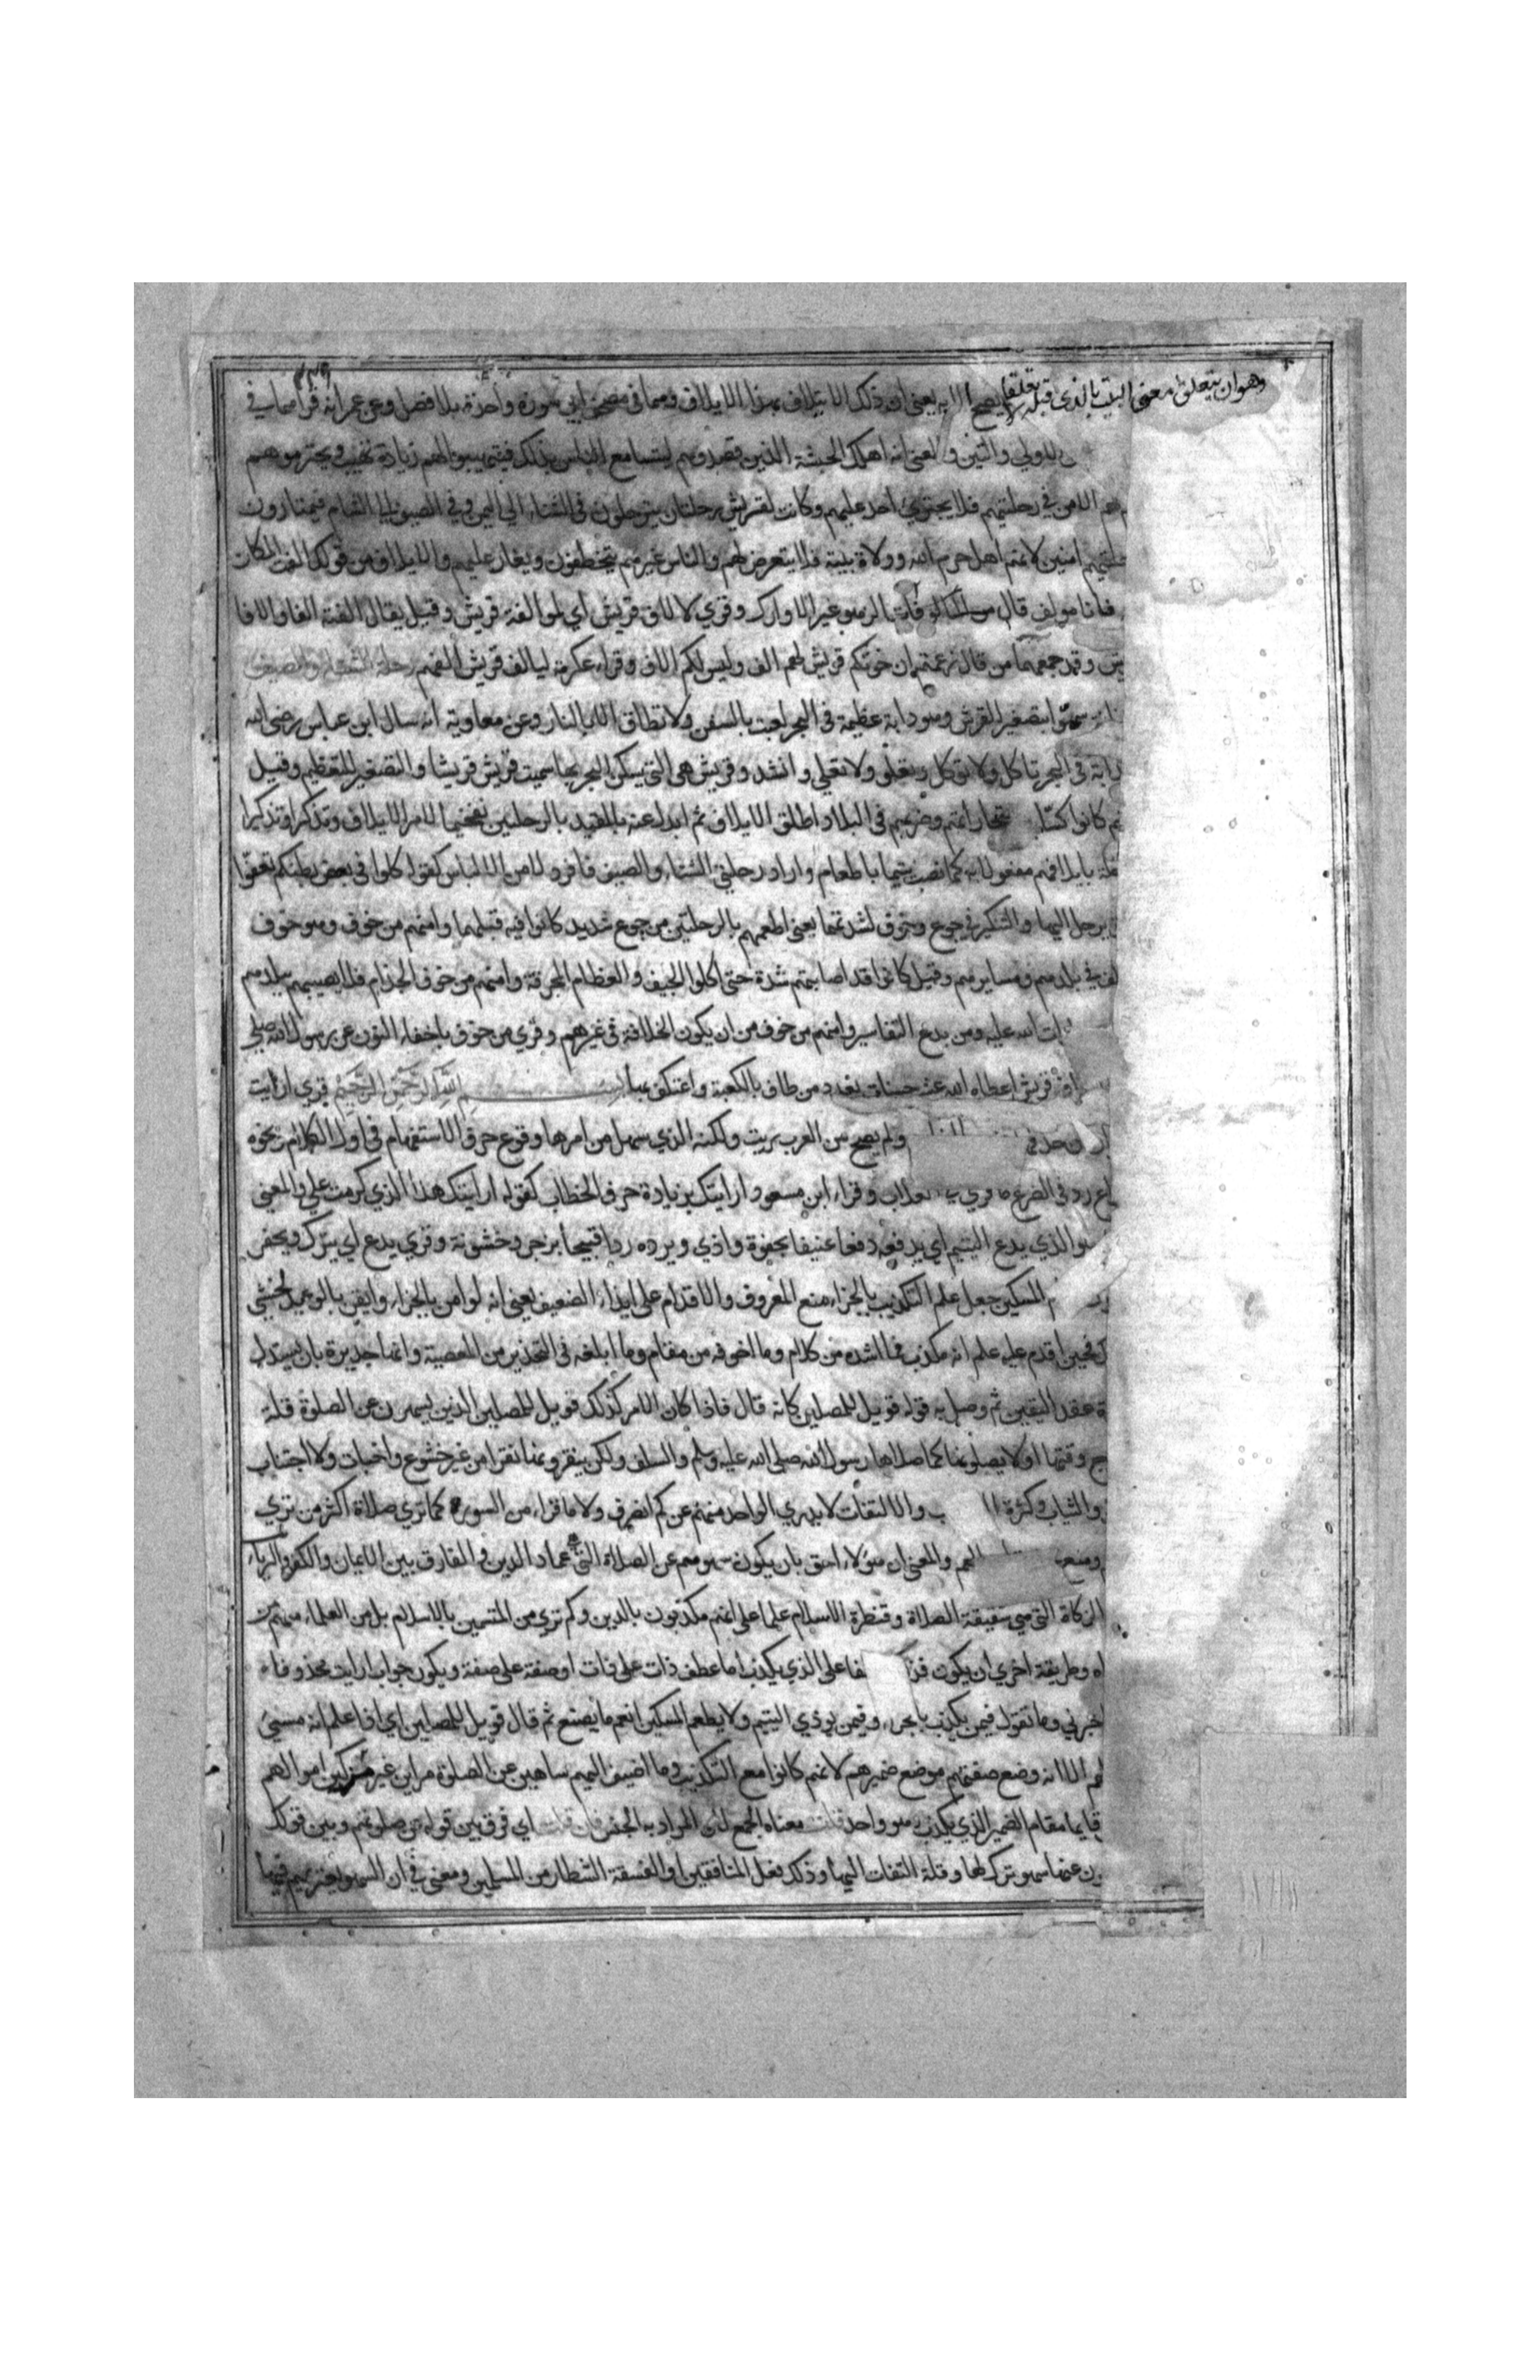 وهوان يتعلق معنى البيت بالذي قبله تعلقا لا يصح الا به يعني ان ذلك الايتلاف بهذا الايلاف وهما في مصحف ابي سورة واحدة بلا فصل وعن عمر انه قراهما في
الاولي والتين والمعنى انه اهلك الحبشة الذين قصدوهم ليتسامع الناس بذلك فيتهيبوا لهم زيادة تهيب ويحترموهم
لهم الامن في رحلتيهم فلا يجترئ احد عليهم وكانت لقريش رحلتان يترحلون في الشتاء الي اليمن وفي الصيف الي الشام فيمتارون
رحلتيهم امنين لانهم اهل حرم الله وولاة بيته فلا يتعرض لهم والناس غيرهم يتخطفون ويغار عليهم والايلاف من قولك الفت المكان
فانا مولف قال من المالفات الرهو غير الاوارك وقري لالاف قريش اي لموالفة قريش وقيل يقال الفته الفا والافا
وقد جمعهما من قال زعمتم ان خوتكم قريش لهم الف وليس لكم الاف وقراء عكرمة ليالف قريش الفهم رحلة الشتاء والصيف
سموا بتصغير القرش وهو دابة عظيمة في البحر تعبث بالسفن ولا تطاق الا بالنار وعن معاوية انه سال ابن عباس رضي الله
دابة في البحر تاكل ولا توكل وتعلو ولا تعلي وانشد وقريش هي التي تسكن البحر بها سميت قريش قريشا والتصغير للتعظيم وقيل
كانوا كسابين بتجاراتهم وضربهم في البلاد واطلق الايلاف ثم ابدل عنه المقيد بالرحلتين تفخيما لامر الايلاف وتذكيرا
رحلة بايلافهم مفعولا به كما نصب يتيما باطعام واراد رحلتي الشتاء والصيف فافرد لامن الالباس كقوله كلوا في بعض بطنكم تعفوا
يرحل اليها والتنكير في جوع وخوف لشدتهما يعني اطعمهم بالرحلتين من جوع شديد كانوا فيه قبلهما وامنهم من خوف وهو خوف
في بلدهم ومسايرهم وقيل كانوا قد اصابتهم شدة حتى اكلوا الجيف والعظام المحرقة وامنهم من خوف الجذام فلا يصيبهم ببلدهم
الله عليه ومن بدع التفاسير وامنهم من خوف من ان يكون الخلافة في غيرهم وقري من خوف باخفاء النون عن رسول الله صلي
قريش اعطاه الله عشر حسنات بعدد من طاف بالكعبة واعتكف بها بسم الله الرحمن الرحيم قري ارايت
ولم يصح من العرب ريت ولكنه الذي سهل من امرها وقوع حرف الاستفهام في اول الكلام ونحوه
رد في الضرع ما قري وقراء ابن مسعود ارايتك بزيادة حرف الخطاب كقوله ارايتك هذا الذي كرمت علي والمعني
هو الذي يدع اليتيم اي يدفعه دفعا عنيفا بجفوة واذي ويرده ردا قبيحا بزجر وخشونة وقري يدع اي يترك ويجفو
المسكين جعل علم التكذيب بالجزاء منع المعروف والاقدام على ايذاء الضعيف يعني انه لو امن بالجزاء وايقن بالوعيد لخشي
فحين اقدم عليه علم انه مكذب فما اشده من كلام وما اخوفه من مقام وما ابلغه في التحذير من المعصية وانها جديرة بان يستدل
عقد اليقين ثم وصل به قوله فويل للمصلين كانه قال فاذا كان الامر كذلك فويل للمصلين الذين يسهون عن الصلوة قلة
وقتها اولا يصلونها كما صلاها رسول الله صلى الله عليه وسلم والسلف ولكن ينقرونها نقرا من غير خشوع واخبات ولا اجتناب
والثياب وكثرة والالتفات لا يدري الواحد منهم عن كم انصرف ولا ما قراء من السورة كما تري صلاة اكثر من تري
ومنع والمعني ان هؤلاء احق بان يكون سهوهم عن الصلاة التي عماد الدين والفارق بين الايمان والكفر والرياء
الزكاة التي هي شقيقة الصلاة وقنطرة الاسلام علما على انهم مكذبون بالدين وكم تري من المتسمين بالاسلام بل من العلماء منهم من
وطريقة اخري ان يكون على الذي يكذب اما عطف ذات علي ذات او صفة على صفة ويكون جواب ارايت محذوفا
اخبرني وما تقول فيمن يكذب بالجزاء وفيمن يؤذي اليتيم ولا يطعم المسكين انعم ما يصنع ثم قال فويل للمصلين اي اذا علم انه مسيئ
الا انه وضع صفتهم موضع ضميرهم لانهم كانوا مع التكذيب وما اضيف اليهم ساهين عن الصلوة مراين غير مزكين اموالهم
قايما مقام الضمير الذي يكذب وهو واحد قلت معناه الجمع لان المراد به الجنس فان قلت اي فرق بين قوله عن صلوتهم وبين قولك
عنها سهو ترك لها وقلة التفات اليها وذلك فعل المنافقين او الفسقة الشطار من المسلمين ومعنى في ان السهو يعتريهم فيها